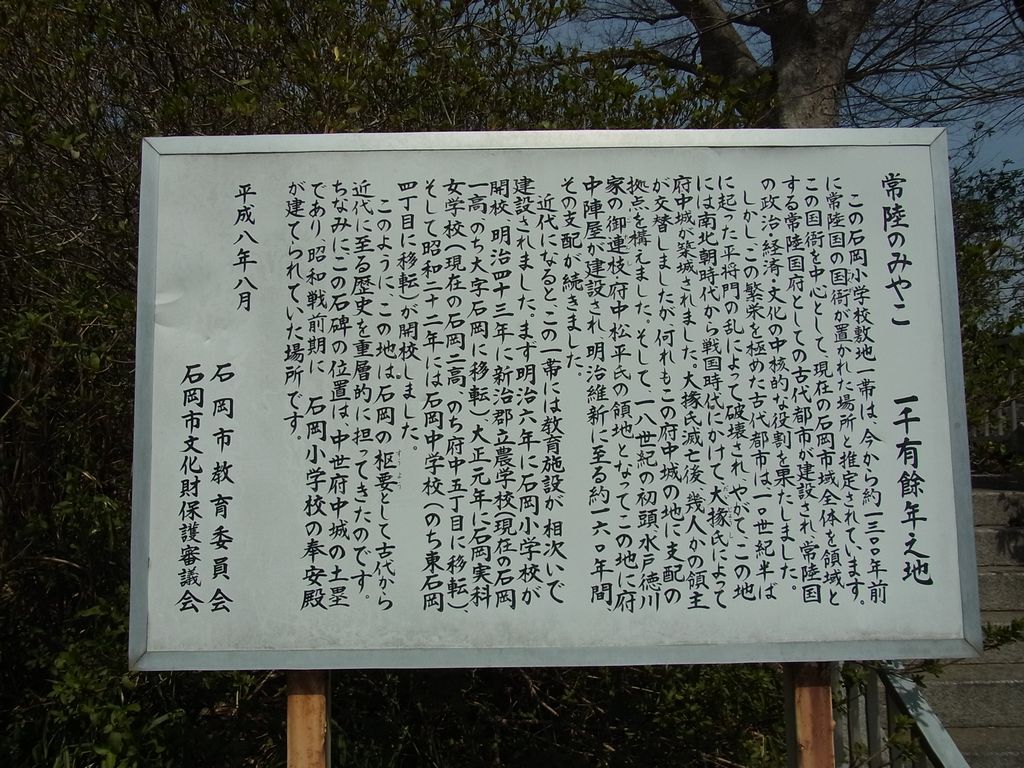 常陸のみやこ 一千有餘年之地
この石岡小学校敷地一帯は、今から約一三〇〇年前
に常陸国の国衙が置かれた場所と推定されています。
この国衙を中心として、現在の石岡市域全体を領域と
する常陸国府としての古代都市が建設され、常陸国
の政治・経済・文化の中核的な役割を果たしました。
しかし、この繁栄を極めた古代都市は一〇世紀半ば
に起った平将門の乱によって破壊され、やがて、この地
には南北朝時代から戦国時代にかけて、大掾氏によって
府中城が築城されました。大掾氏滅亡後、幾人かの領主
が交替しましたが、何れもこの府中城の地に支配の
拠点を構えました。そして、一八世紀の初頭、水戸徳川
家の御連枝、府中松平氏の領地となってこの地に府
中陣屋が建設され、明治維新に至る約一六〇年間、
その支配が続きました。
近代になると、この一帯には教育施設が相次いで
建設されました。まず明治六年に石岡小学校が
開校、明治四十三年に新治郡立農学校(現在の石岡
一高、のち大字石岡に移転)、大正元年に石岡実科
女学校(現在の石岡二高、のち府中五丁目に移転)、
そして昭和二十二年には石岡中学校(のち東石岡
四丁目に移転)が開校しました。
このように、この地は石岡の枢要として古代から
近代に至る歴史を重層的に担ってきたのです。
ちなみにこの石碑の位置は、中世府中城の土塁
であり、昭和戦前期に、石岡小学校の奉安殿
が建てられていた場所です。
平成八年八月
石岡市教育委員会
石岡市文化財保護審議会